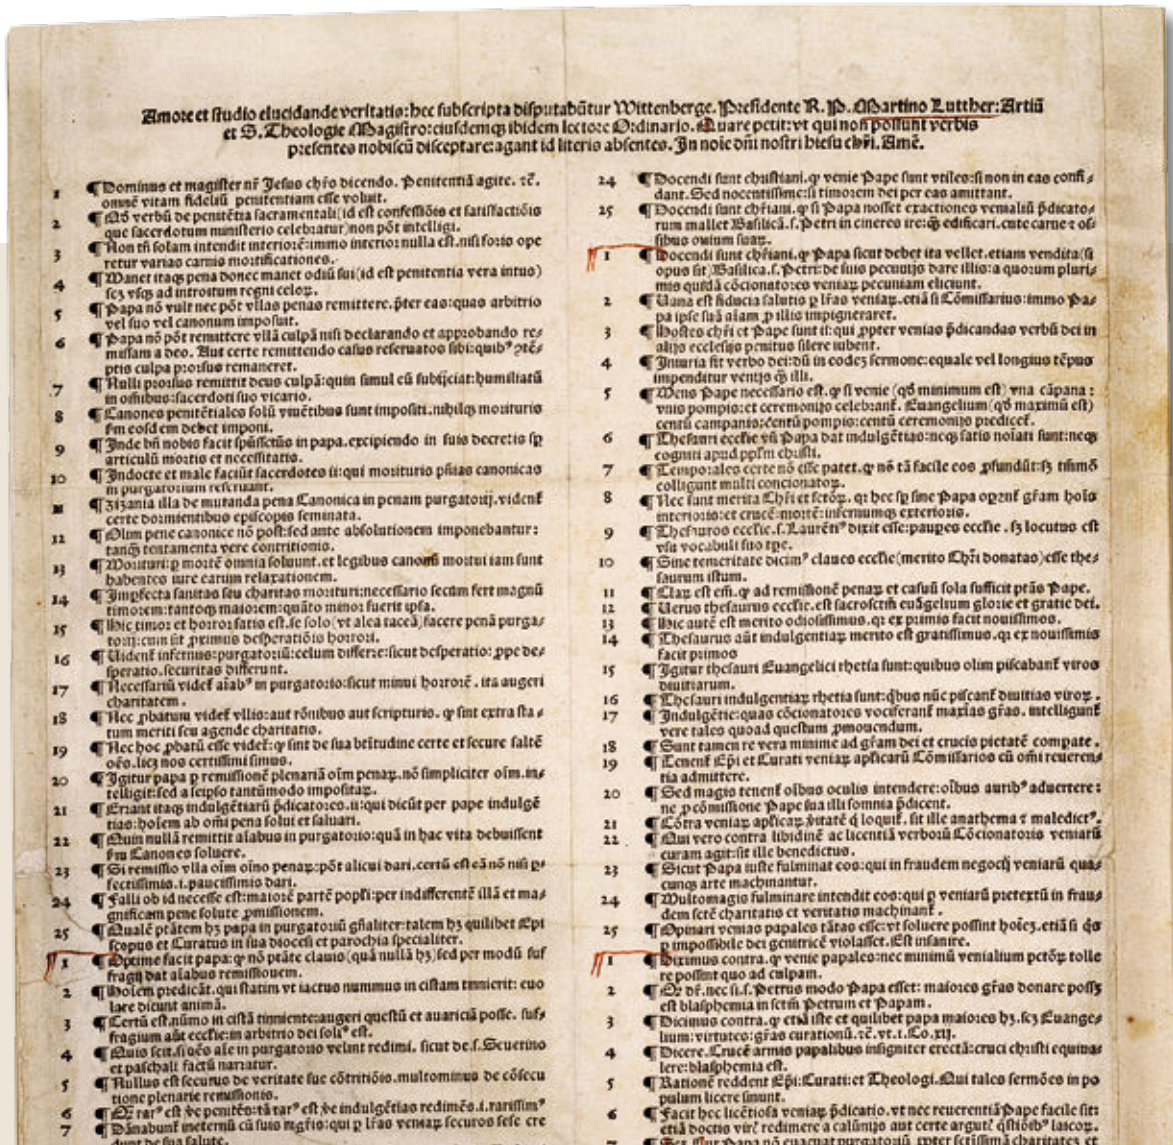 Amore et studio elucidande veritatis: hec subscripta disputabũtur Wittenberge. Presidente R. P. Martino Lutther: Artiũ
et S. Theologie Magistro: eiusdemqꝫ ibidem lectore Ordinario. Quare petit: vt qui non possunt verbis
presentes nobiscũ disceptare: agant id literis absentes. In noĩe dñi nostri hiesu chr̃i. Amẽ.
1 ¶ Dominus et magister nr̃ Jesus chr̃s dicendo. Penitentiã agite. ꝛc̃.
omnẽ vitam fideliũ penitentiam esse voluit.
2 ¶ Qđ verbũ de penitẽtia sacramentali (id est confessiõis et satisfactiõis
que sacerdotum ministerio celebratur) non põt intelligi.
3 ¶ Non tñ solam intendit interiorẽ: immo interior nulla est. nisi foris ope
retur varias carnis mortificationes.
4 ¶ Manet itaqꝫ pena donec manet odiũ sui (id est penitentia vera intus)
scꝫ vsqꝫ ad introitum regni celoꝝ.
5 ¶ Papa nõ vult nec põt vllas penas remittere. p̃ter eas: quas arbitrio
vel suo vel canonum imposuit.
6 ¶ Papa nõ põt remittere vllã culpã nisi declarando et approbando re-
missam a deo. Aut certe remittendo casus reseruatos sibi: quibꝰ ꝯtẽ-
ptis culpa prorsus remaneret.
7 ¶ Nulli prorsus remittit deus culpã: quin simul eũ subijciat: humiliatũ
in om̃ibus: sacerdoti suo vicario.
8 ¶ Canones penitẽtiales solũ viuẽtibus sunt impositi. nihilqꝫ morituris
ſm eosdem debet imponi.
9 ¶ Inde bñ nobis facit spũssctũs in papa. excipiendo in suis decretis sꝑ
articulũ mortis et necessitatis.
10 ¶ Indocte et male faciũt sacerdotes ii: qui morituris pñias canonicas
in purgatorium reseruant.
11 ¶ Zizania illa de mutanda pena Canonica in penam purgatorij. vident̃
certe dormientibus episcopis seminata.
12 ¶ Olim pene canonice nõ post: sed ante absolutionem imponebantur:
tanqꝫ tentamenta vere contritionis.
13 ¶ Morituri: ꝑ mortẽ omnia soluunt. et legibus canonũ mortui iam sunt
habentes iure earum relaxationem.
14 ¶ Imꝑfecta sanitas seu charitas morituri: necessario secum fert magnũ
timorem: tantoqꝫ maiorem: quãto minor fuerit ipsa.
15 ¶ Hic timor et horror satis est. se solo (vt alea taceã) facere penã purga-
torij: cum sit ꝓximus desperatiõis horrori.
16 ¶ Vident̃ infernus: purgatoriũ: celum differre: sicut desperatio: ꝓpe de-
speratio. securitas differunt.
17 ¶ Necessariũ videt̃ aĩabꝰ in purgatorio: sicut minui horrorẽ. ita augeri
charitatem.
18 ¶ Nec ꝓbatum videt̃ vllis: aut rõnibus aut scripturis. ꝙ sint extra sta-
tum meriti seu agende charitatis.
19 ¶ Nec hoc ꝓbatũ esse videt̃: ꝙ sint de sua btĩtudine certe et secure saltẽ
oẽs. licꝫ nos certissimi simus.
20 ¶ Igitur papa ꝑ remissionẽ plenariã oĩm penaꝝ. nõ simpliciter oĩm. in-
telligit: sed a seipso tantũmodo impositaꝝ.
21 ¶ Errant itaqꝫ indulgẽtiarũ p̃dicatores. ii: qui dicũt per pape indulgẽ
tias: hoĩem ab om̃i pena solui et saluari.
22 ¶ Quin nullã remittit aĩabus in purgatorio: quã in hac vita debuissent
ſm Canones soluere.
23 ¶ Si remissio vlla oĩm oĩno penaꝝ: põt alicui dari. certũ est eã nõ nisi ꝑ-
fectissimis. i. paucissimis dari.
24 ¶ Falli ob id necesse est: maiorẽ partẽ popl̃i: per indifferentẽ illã et ma-
gnificam pene solute ꝓmissionem.
25 ¶ Qualẽ ptãtem hꝫ papa in purgatoriũ gñaliter: talem hꝫ quilibet Epi
scopus et Curatus in sua diocesi et parochia specialiter.
1 ¶ Optime facit papa: ꝙ nõ ptãte clauis (quã nullã hꝫ) sed per modũ suf
fragij dat aĩabus remissionem.
2 ¶ Hoĩem predicãt. qui statim vt iactus nummus in cistam tinnierit: euo
lare dicunt animã.
3 ¶ Certũ est. nũmo in cistã tinniente: augeri questũ et auariciã posse. suf-
fragium aũt ecclĩe: in arbitrio dei solꝰ est.
4 ¶ Quis scit. si oẽs aĩe in purgatorio velint redimi. sicut de. s. Seuerino
et paschali factũ narratur.
5 ¶ Nullus est securus de veritate sue cõtritiõis. multominus de cõsecu
tione plenarie remissionis.
6 ¶ Qꝫ rarꝰ est ṽe penitẽs: tã rarꝰ est ṽe indulgẽtias redimẽs. i. rarissimꝰ
7 ¶ Dãnabunt̃ ineternũ cũ suis mgr̃is: qui ꝑ lr̃as veniaꝝ securos sese cre
dunt de sua salute.
24 ¶ Docendi sunt christiani. ꝙ venie Pape sunt vtiles: si non in eas confi-
dant. Sed nocentissime: si timorem dei per eas amittant.
25 ¶ Docendi sunt chr̃iani. ꝙ si Papa nosset exactiones venialiũ p̃dicato-
rum mallet Basilicã. s. Petri in cineres ire: qꝫ edificari. cute carne ꝛ os-
sibus ouium suaꝝ.
1 ¶ Docendi sunt chr̃iani. ꝙ Papa sicut debet ita vellet. etiam vendita (si
opus sit) Basilica. s. Petri: de suis pecunijs dare illis: a quorum pluri-
mis quidã cõcionatores veniaꝝ pecuniam eliciunt.
2 ¶ Vana est fiducia salutis ꝑ lr̃as veniaꝝ. etiã si Cõmissarius: immo Pa-
pa ipse suã aĩam ꝓ illis impigneraret.
3 ¶ Hostes chr̃i et Pape sunt ii: qui ꝓpter venias p̃dicandas verbũ dei in
alijs ecclesijs penitus silere iubent.
4 ¶ Iniuria fit verbo dei: dũ in eodeꝫ sermone: equale vel longius tẽpus
impenditur venijs qꝫ illi.
5 ¶ Mens Pape necessario est. ꝙ si venie (qđ minimum est) vna cãpana:
vnis pompis: et ceremonijs celebrant̃. Euangelium (qđ maximũ est)
centũ campanis: centũ pompis: centũ ceremonijs predicet̃.
6 ¶ Thesauri ecclĩe vñ Papa dat indulgẽtias: neqꝫ satis noĩati sunt: neqꝫ
cogniti apud ppl̃m christi.
7 ¶ Temporales certe nõ esse patet. ꝙ nõ tã facile eos ꝓfundũt: sꝫ tm̃mõ
colligunt multi concionatoꝝ.
8 ¶ Nec sunt merita Chr̃i et sctõꝝ. qꝛ hec sꝑ sine Papa operant̃ gr̃am hoĩs
interioris: et crucẽ: mortẽ: infernumqꝫ exterioris.
9 ¶ Thesauros ecclĩe. s. Laurẽtiꝰ dixit esse: pauperes ecclĩe. sꝫ locutus est
vsu vocabuli suo tꝑe.
10 ¶ Sine temeritate dicimꝰ claues ecclĩe (merito Chr̃i donatas) esse the-
saurum istum.
11 ¶ Claꝝ est em̃. ꝙ ad remissionẽ penaꝝ et casuũ sola sufficit ptãs Pape.
12 ¶ Verus thesaurus ecclĩe. est sacrosctm̃ euãgelium glorie et gratie dei.
13 ¶ Hic autẽ est merito odiosissimus. qꝛ ex primis facit nouissimos.
14 ¶ Thesaurus aũt indulgentiaꝝ merito est gratissimus. qꝛ ex nouissimis
facit primos
15 ¶ Igitur thesauri Euangelici rhetia sunt: quibus olim piscabant̃ viros
diuitiarum.
16 ¶ Thesauri indulgentiaꝝ rhetia sunt: q̃bus nũc piscant̃ diuitias viroꝝ.
17 ¶ Indulgẽtie: quas cõcionatores vociferant̃ maxĩas gr̃as. intelligunt̃
vere tales quoad questum ꝓmouendum.
18 ¶ Sunt tamen re vera minime ad gr̃am dei et crucis pietatẽ compate.
19 ¶ Tenent̃ Ep̃i et Curati veniaꝝ apl̃icarũ Cõmissarios cũ om̃i reueren-
tia admittere.
20 ¶ Sed magis tenent̃ oĩbus oculis intendere: oĩbus auribꝰ aduertere:
ne ꝓ cõmissione Pape sua illi somnia p̃dicent.
21 ¶ Cõtra veniaꝝ apl̃icaꝝ ṽitatẽ q̃ loquit̃. sit ille anathema ꝛ maledictꝰ.
22 ¶ Qui vero contra libidinẽ ac licentiã verborũ Cõcionatoris veniarũ
curam agit: sit ille benedictus.
23 ¶ Sicut Papa iuste fulminat eos: qui in fraudem negocij veniarũ qua-
cunqꝫ arte machinantur.
24 ¶ Multomagis fulminare intendit eos: qui ꝑ veniarũ pretextũ in frau-
dem sctẽ charitatis et veritatis machinant̃.
25 ¶ Opinari venias papales tãtas esse: vt soluere possint hoĩeꝫ. etiã si q̃s
ꝑ impossibile dei genitricẽ violasset. Est insanire.
1 ¶ Diximus contra. ꝙ venie papales: nec minimũ venialium pctõꝝ tolle
re possint quo ad culpam.
2 ¶ Qꝛ dr̃. nec si. s. Petrus modo Papa esset: maiores gr̃as donare possꝫ
est blasphemia in sctm̃ Petrum et Papam.
3 ¶ Dicimus contra. ꝙ etiã iste et quilibet papa maiores hꝫ. scꝫ Euange-
lium: virtutes: gr̃as curationũ. ꝛc̃. vt. i. Co. xij.
4 ¶ Dicere. Crucẽ armis papalibus insigniter erectã: cruci christi equiua-
lere: blasphemia est.
5 ¶ Rationẽ reddent Ep̃i: Curati: et Theologi. Qui tales sermões in po
pulum licere sinunt.
6 ¶ Facit hec licẽtiosa veniaꝝ p̃dicatio. vt nec reuerentiã Pape facile sit:
etiã doctis viris̃ redimere a calũnijs aut certe argutꝫ q̃stiõibꝰ laicoꝝ.